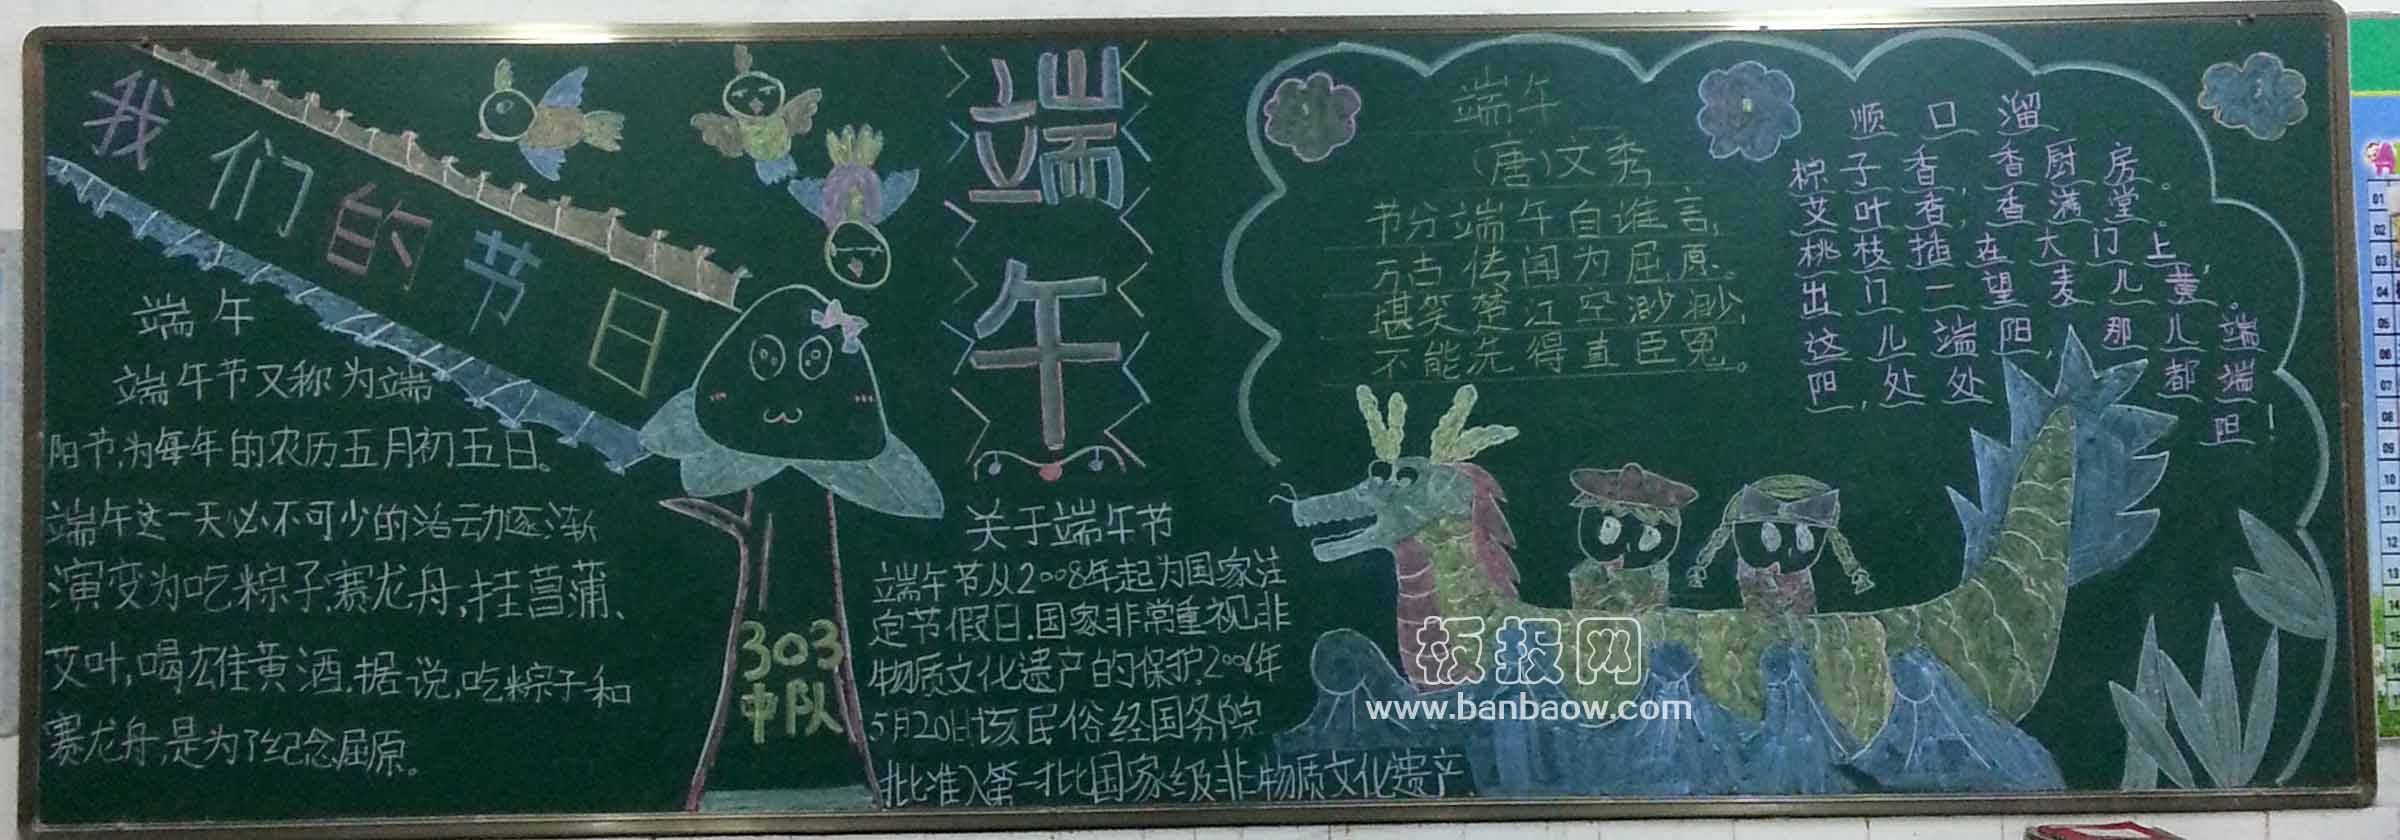 我们的节日
端午
端午节又称为端
阳节,为每年的农历五月初五日。
端午这一天必不可少的活动逐渐
演变为吃粽子,赛龙舟,挂菖蒲、
艾叶,喝雄黄酒.据说,吃粽子和
赛龙舟,是为了纪念屈原。
303
中队
端午
关于端午节
端午节从2008年起为国家法
定节假日.国家非常重视非
物质文化遗产的保护.2006年
5月20日该民俗经国务院
批准入第一批国家级非物质文化遗产.
端午
(唐)文秀
节分端午自谁言,
万古传闻为屈原。
堪笑楚江空渺渺,
不能洗得直臣冤。
顺口溜
粽子香,香厨房。
艾叶香,香满堂。
桃枝插在大门上,
出门一望麦儿黄。
这儿端阳,那儿端
阳,处处都端
阳!
板报网
www.banbaow.com
01
02
03
04
05
06
07
08
09
10
11
12
13
14